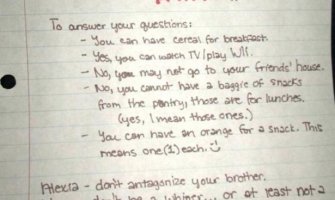 To answer your questions:
- You can have cereal for breakfast.
- Yes, you can watch TV/play Wii.
- No, you may not go to your friends' house.
- No, you cannot have a baggie of snacks
from the pantry, those are for lunches.
(yes, I mean those ones.)
- You can have an orange for a snack. This
means one (1) each.
- don't antagonize your brother.
be a whiner... or at least not a